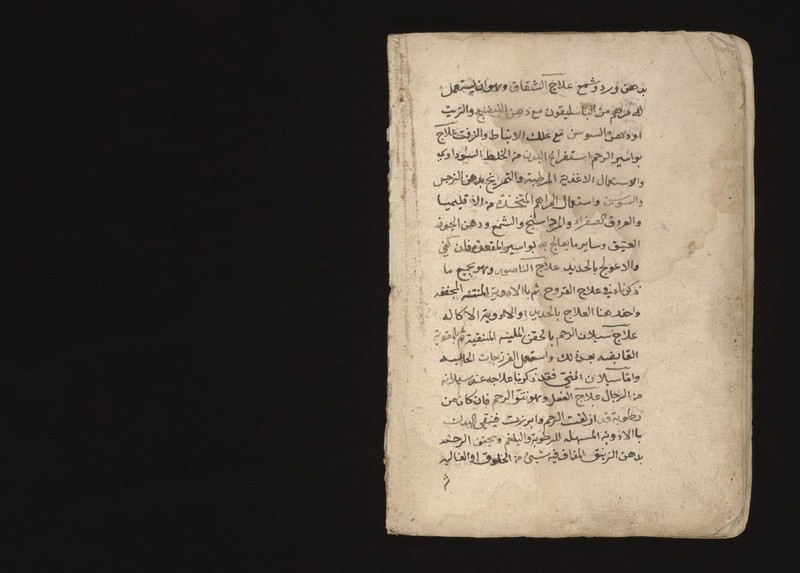 بدهن ورد وشمع علاج الشقاق وهو ان يستعمل
له مراهم من الباسليقون مع دهن البنفسج والزيت
او دهن السوسن مع علك الانباط والزفت علاج
بواسير الرحم استفراغ البدن من الخلط السوداوي
والاستعمال الاغذية المرطبة والتمريخ بدهن النرجس
والسوسن واستعمال المراهم المتخذة من الاقليميا
والعروق الصفر والمرداسنج والشمع ودهن الجوز
العتيق وساير ما يعالج به بواسير المقعدة فان كفي
والا عولج بالحديد علاج الناصور وهو بجميع ما
ذكرناه في علاج القروح ثم باالادوية المنقية المجففه
واحذر هنا العلاج بالحديد والادوية الاكاله
علاج سيلان الرحم بالحقن الملينه المنقية ثم
القابضه بعد ذلك واستعمل الفرزجات الحابسه
واما سيلان المني فقد ذكرنا علاجه عند سيلانه
من الرجال علاج العفل وهو نتو الرحم فان كان من
رطوبة قد ازلقت الرحم وابرزت فينقى البدن
باالادوية المسهله للرطوبة والبلغم ويحقن الرحم
بدهن الزنبق المداف فيه شيئ من الخلوق او الغاليه